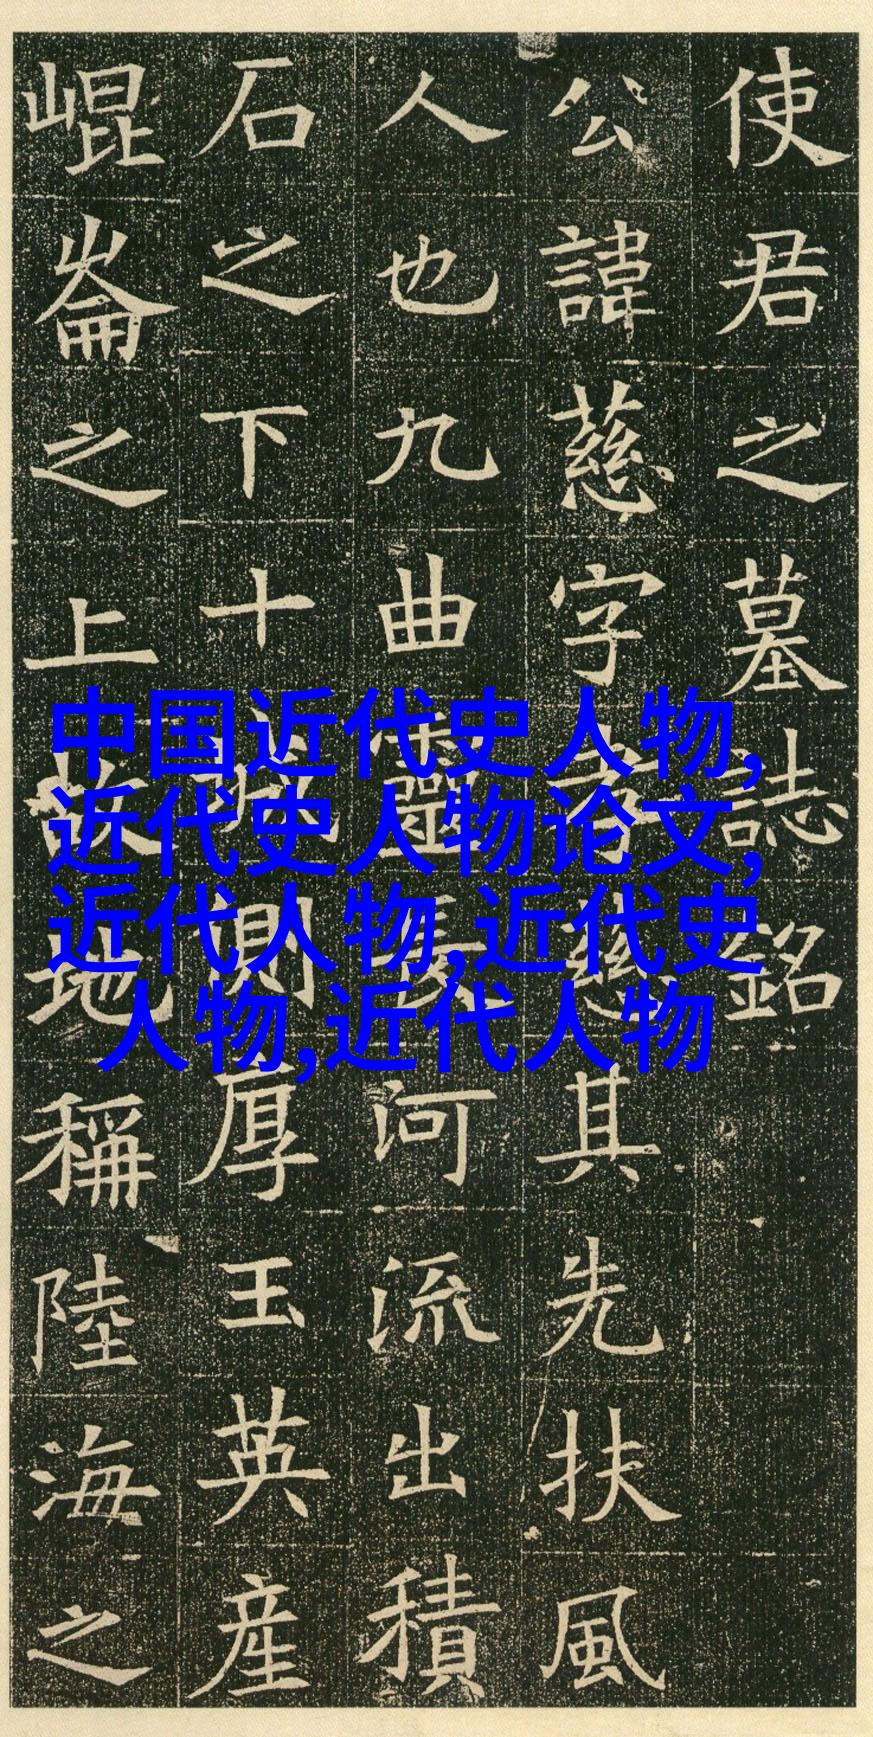 使君之墓誌銘
公諱慈字孝慈其先扶風
人也九曲靈長河流出積
石之下十城側厚玉英産
崐崙之上故地稱陸海之
中国近代史人物,
近代史人物论文,
近代人物,近代史
人物,近代人物